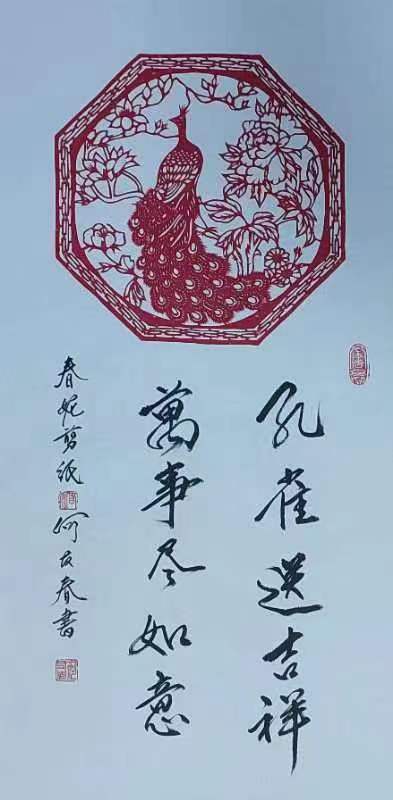 孔雀送吉祥
萬事尽如意
春妮剪纸
何友春書